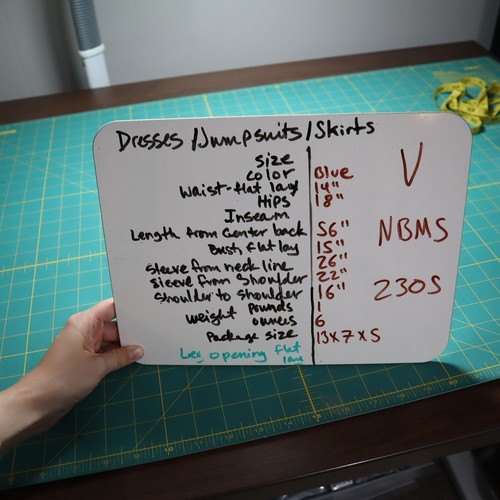 Dresses/Jumpsuits/Skirts
Size
Color Blue
Waist-flat lay 14"
Hips 18"
Inseam
Length from Center back 56"
Bust, flat lay 15"
Sleeve from neck line 26"
sleeve from Shoulder 22"
Shoulder to shoulder 16"
weight Pounds 1
ounces 6
Package size 13x7x5
Leg opening flat
lay
V
NBMS
230S